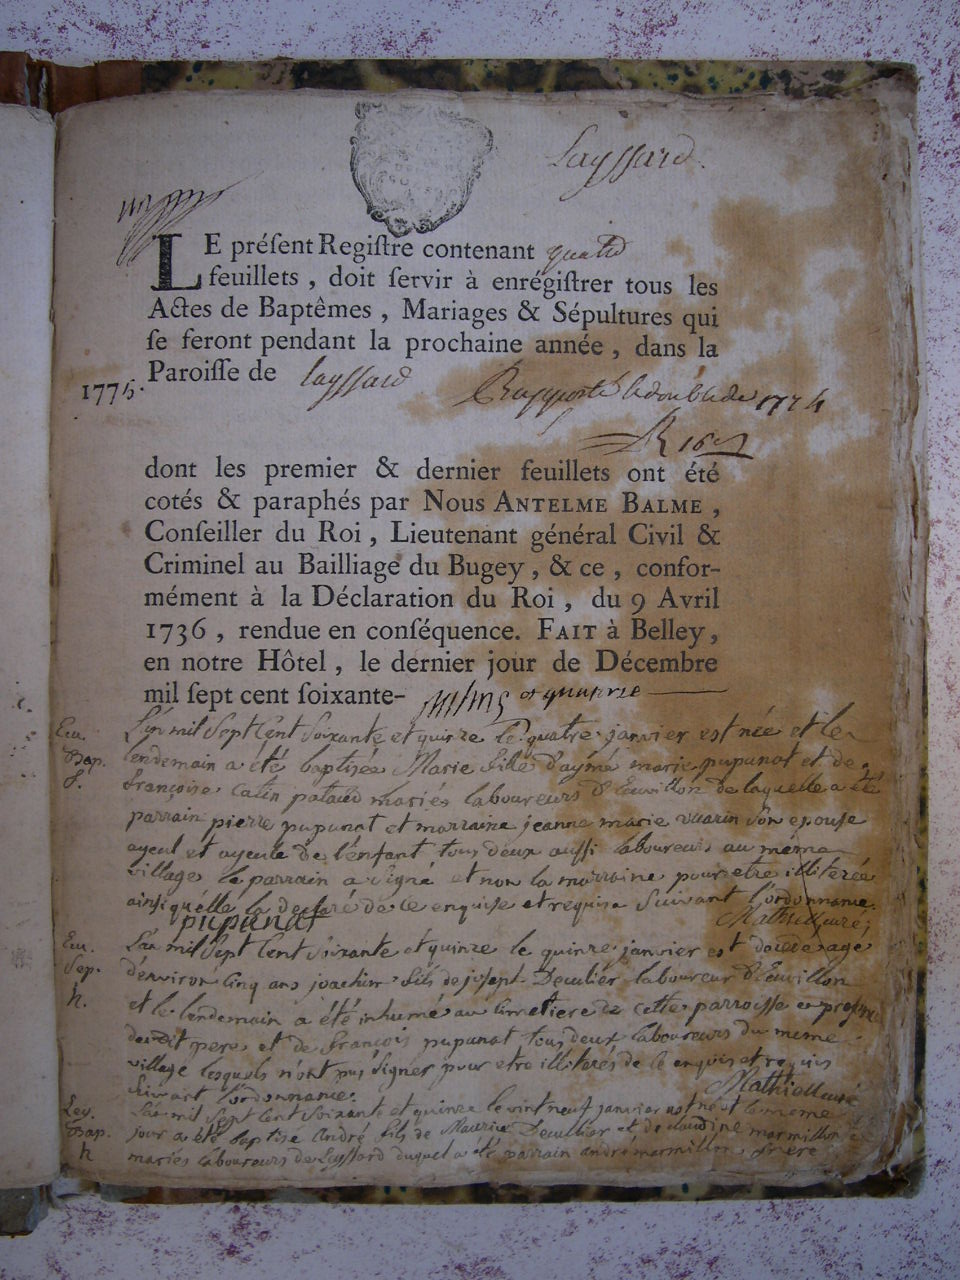 Layssard
LE préſent Regiſtre contenant quatre
feuillets, doit ſervir à enrégiſtrer tous les
Actes de Baptêmes, Mariages & Sépultures qui
ſe feront pendant la prochaine année, dans la
Paroiſſe de layssard Rapporté le double de 1774
1775.
R 16
dont les premier & dernier feuillets ont été
cotés & paraphés par Nous ANTELME BALME,
Conſeiller du Roi, Lieutenant général Civil &
Criminel au Bailliage du Bugey, & ce, confor-
mément à la Déclaration du Roi, du 9 Avril
1736, rendue en conſéquence. FAIT à Belley,
en notre Hôtel, le dernier jour de Décembre
mil ſept cent ſoixante- et quatorze
Eu. L'an mil Sept Cent Soixante et quinze le quatre janvier est née et le
Bap. lendemain a été baptisée Marie fille d'aymé marie pupunat et de
f. françoise Catin mariés laboureurs d'Euvillon de laquelle a été
parrain pierre pupunat et marraine jeanne marie vuarin son epouse
ayeul et ayeule de l'enfant tous deux aussi laboureurs au même
village le parrain a signé et non la marraine pour etre illiterée
ainsi quélle la declaré de ce enquise et requise Suivant l'ordonnance.
pupunat Mathieu curé
Eu. L'an mil Sept Cent Soixante et quinze le quinze janvier est décédé agé
Sep. d'environ Cinq ans joachim fils de joseph Decutier laboureur d'Euvillon
h. et le lendemain a été inhumé au Cimetiere de cette parroisse en presence
dudit pere et de françois pupunat tous deux laboureurs du meme
village lesquels n'ont pus Signer pour etre illiterés de ce enquis et requis
Suivant l'ordonnance. Mathieu curé
Ley. L'an mil Sept Cent Soixante et quinze le vint neuf janvier est né et le meme
Bap. jour a été baptisé André fils de Maurice Decutier et de claudine marmillon
h mariés laboureurs de Leyssard duquel a été parrain andré marmillon frere